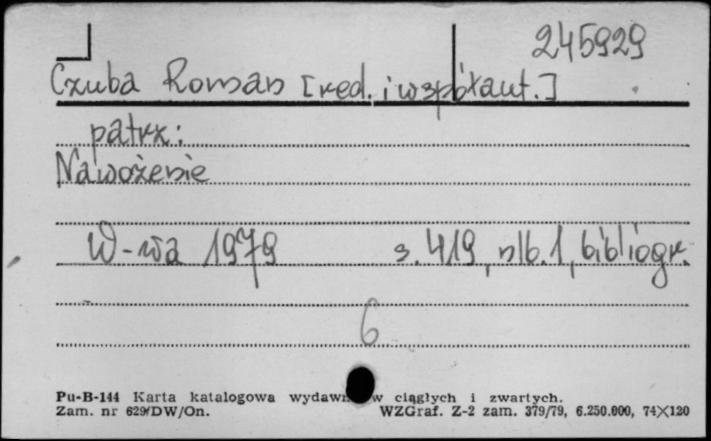 245929
Czuba Roman [red. i współaut.]
patrz:
Nawożenie
W-wa 1979 s. 419, nlb. 1, bibliogr.
6
Pu-B-144 Karta katalogowa wydawn w ciągłych i zwartych.
Zam. nr 629/DW/On. WZGraf. Z-2 zam. 379/79, 6.250.000, 74×120